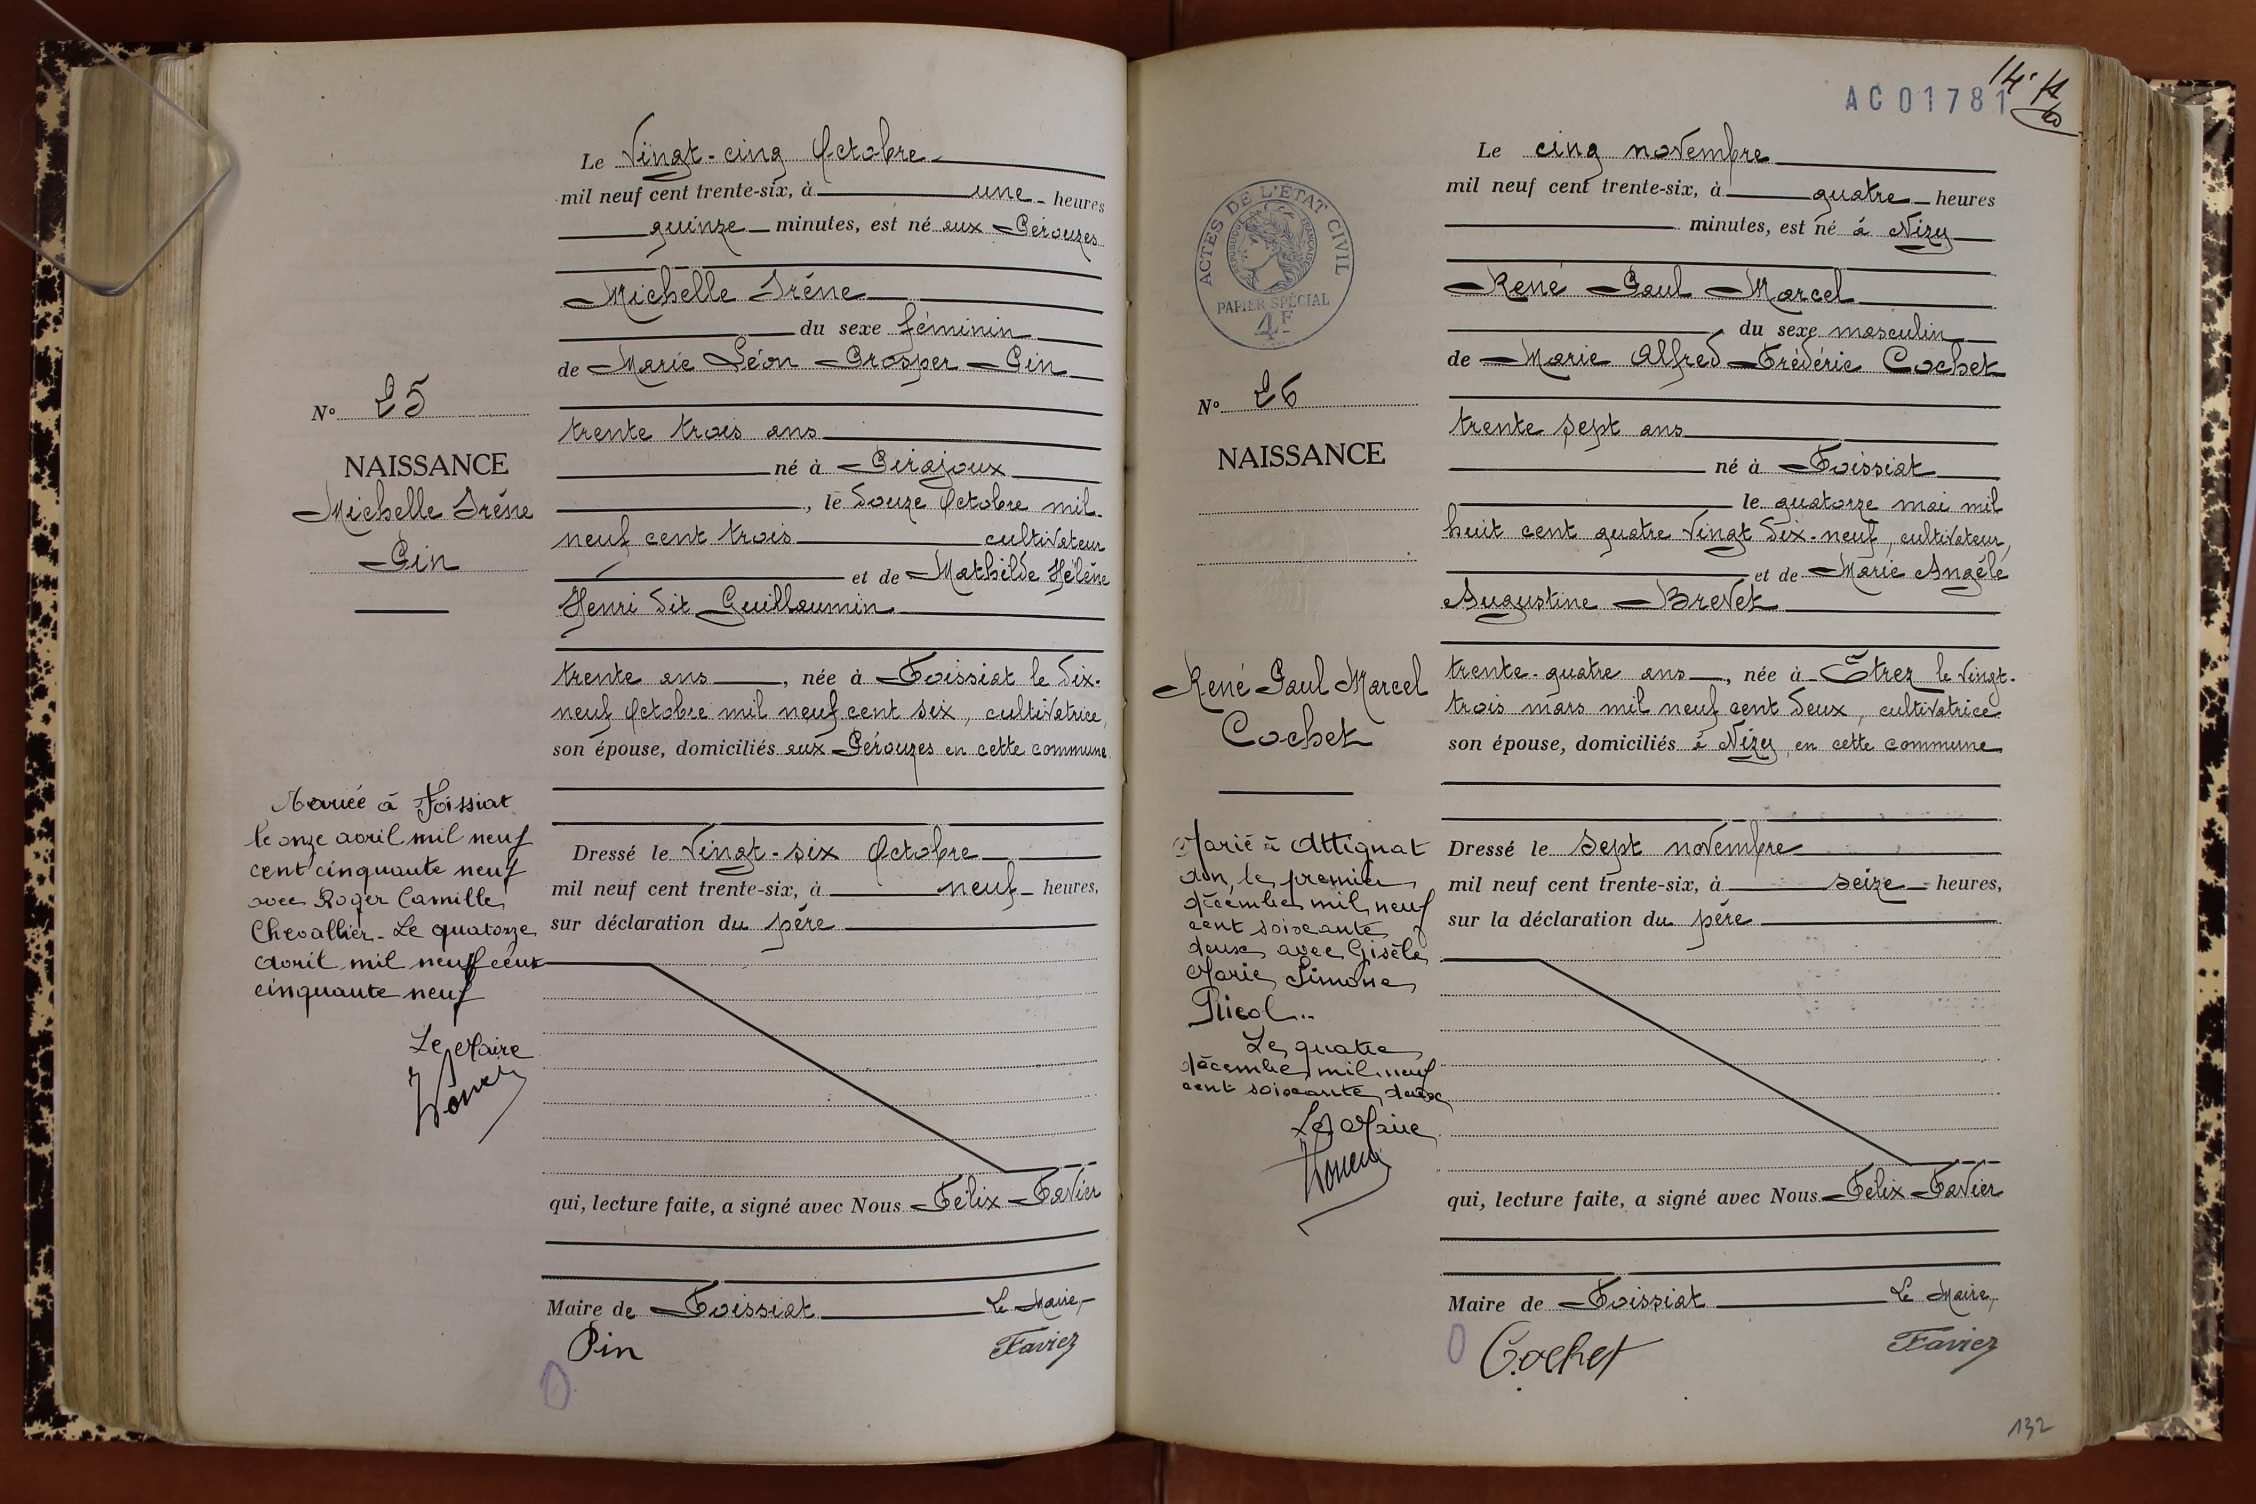 Le Vingt-cinq Octobre
mil neuf cent trente-six, à une heures
quinze minutes, est né aux Pérouzes
Michelle Irène
du sexe féminin
de Marie Léon Prosper Pin
N° 25
trente trois ans
NAISSANCE
né à Pirajoux
Michelle Irène
Pin
, le douze Octobre mil
neuf cent trois cultivateur
et de Mathilde Hélène
Henri dit Guillaumin
trente ans , née à Foissiat le dix-
neuf Octobre mil neuf cent six, cultivatrice,
son épouse, domiciliés aux Pérouzes en cette commune
Mariée à Foissiat
le onze avril mil neuf
cent cinquante neuf
avec Roger Camille
Chevallier. Le quatorze
avril mil neuf cent
cinquante neuf
Le Maire
Dressé le Vingt-six Octobre
mil neuf cent trente-six, à neuf heures,
sur déclaration du père
qui, lecture faite, a signé avec Nous Félix Favier
Maire de Foissiat Le Maire,
Pin Favier
AC 01781
Le cinq novembre
mil neuf cent trente-six, à quatre heures
minutes, est né à Nizy
ACTES DE L'ETAT CIVIL
REPUBLIQUE FRANÇAISE
PAPIER SPÉCIAL
4F
René Paul Marcel
du sexe masculin
de Marie Alfred Frédéric Cochet
N° 26
trente sept ans
NAISSANCE
né à Foissiat
le quatorze mai mil
huit cent quatre vingt dix-neuf, cultivateur,
et de Marie Angèle
Augustine Brevet
René Paul Marcel
Cochet
trente-quatre ans , née à Étrez le vingt-
trois mars mil neuf cent deux, cultivatrice
son épouse, domiciliés à Nizy, en cette commune
Marié à Attignat
Ain, le premier
décembre mil neuf
cent soixante
deux avec Gisèle
Marie Simone
Le quatre
décembre mil neuf
cent soixante deux
Le Maire
Dressé le sept novembre
mil neuf cent trente-six, à seize heures,
sur la déclaration du père
qui, lecture faite, a signé avec Nous Félix Favier
Maire de Foissiat Le Maire,
Cochet Favier
132